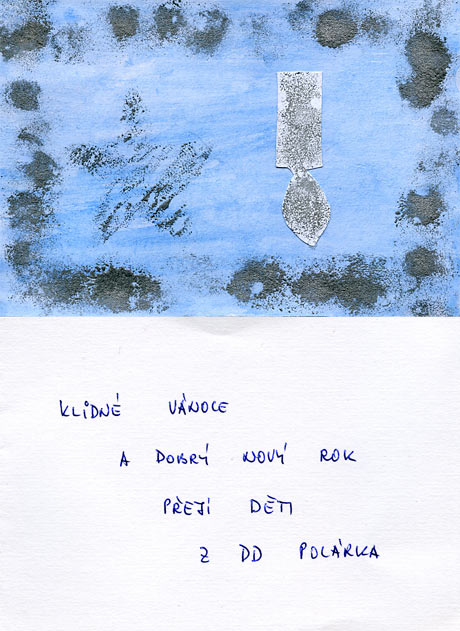 KLIDNÉ VÁNOCE
A DOBRÝ NOVÝ ROK
PŘEJÍ DĚTI
Z DD POLÁRKA